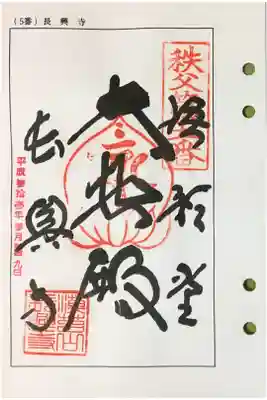 (5番) 長興寺
秩父第五番
語歌堂
大悲殿
長興寺
平成参拾壱年 月 九日